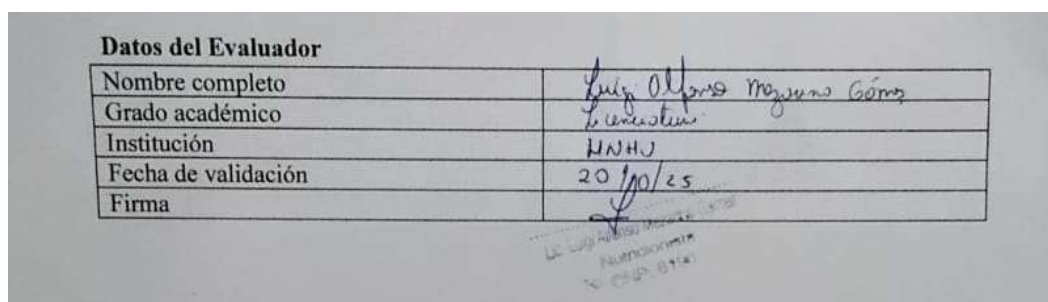 Datos del Evaluador
Nombre completo Luigi Alfonso Gómez
Grado académico Licenciatura
Institución HNHU
Fecha de validación 20/10/25
Firma
Lic. Luigi Alfonso
Nutricionista